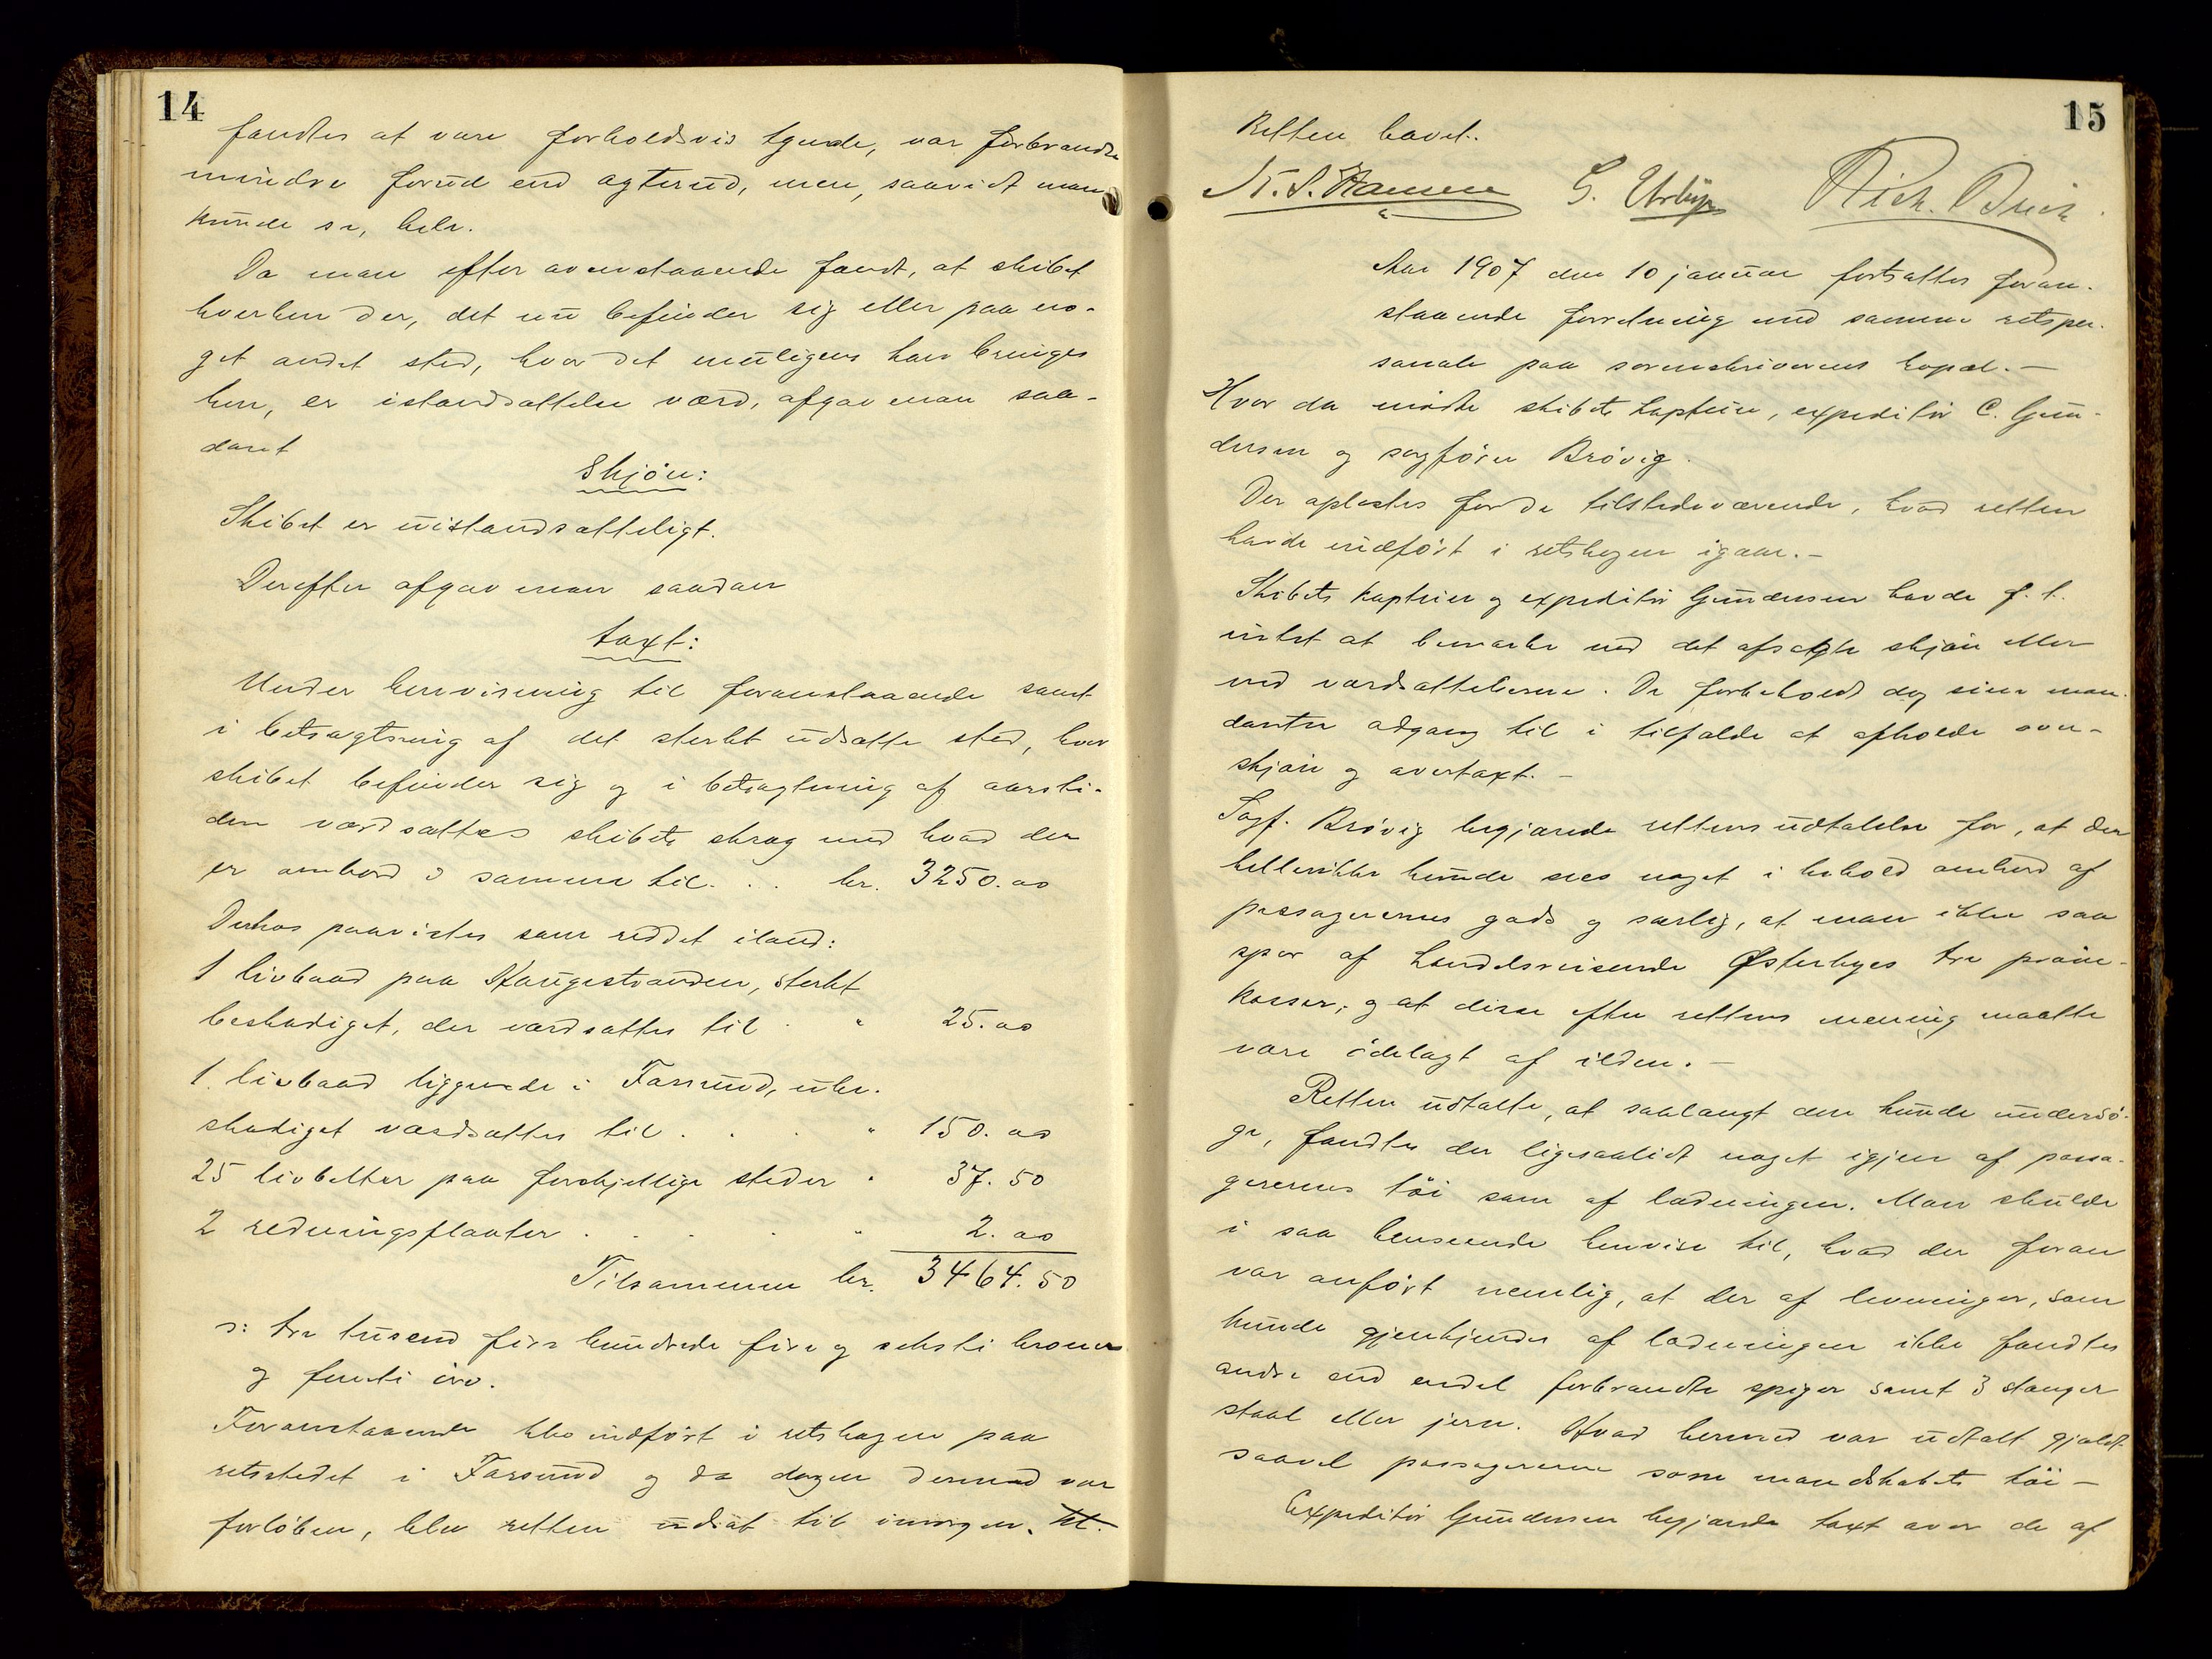 14
fandtes at være forholdsvis tynde, var forbrændte
mindre forud end agterud, men, saavidt man
kunde se, hele.
Da man efter ovenstaaende fandt, at skibet
hverken der, det nu befinder sig eller paa no-
get andet sted, hvor det muligens kan bringes
hen, er istandsættelse værd, afgav man saa-
dant
Skjön:
Skibet er uistandsætteligt.
Derefter afgav man saadan
taxt:
Under henvisning til foranstaaende samt
i betragtning af det sterkt udsatte sted, hvor
skibet befinder sig og i betragtning af aarsti-
den værdsættes skibets skrog med hvad der
er ombord i samme til . . . kr. 3250.00
Derhos paavistes som reddet iland:
1 livbaad paa Haugestranden, sterkt
beskadiget, der værdsattes til . " 25.00
1 livbaad liggende i Farsund, ube-
skadiget værdsattes til . . . " 150.00
25 livbelter paa forskjellige steder " 37.50
2 redningsflaater . . . . " 2.00
Tilsammen kr. 3464.50
ɔ: tre tusend fire hundrede fire og seksti kroner
og femti öre.
Foranstaaende blev indfört i retsbogen paa
retsstedet i Farsund og da dagen dermed var
forlöben, blev retten udsat til imorgen.
15
Retten hævet.
G. Urbye Rich. Buch.
Aar 1907 den 10 januar fortsattes foran-
staaende forretning med samme retsper-
sonale paa sorenskriverens bopæl. –
Hvor da mödte skibets kaptein, expeditör C. Gun-
dersen og sagförer Brövig.
Der oplæstes for de tilstedeværende, hvad retten
havde indfört i retsbogen igaar. –
Skibets kaptein og expeditör Gundersen havde f. t.
intet at bemærke ved det afsagte skjön eller
ved værdsættelserne. De forbeholdt dog sine man-
danter adgang til i tilfælde at afholde over-
skjön og overtaxt. –
Sagf. Brövig begjærede rettens udtalelse for, at der
hellerikke kunde sees noget i behold ombord af
passagerernes gods og særlig, at man ikke saa
spor af handelsreisende Østerbyes tre pröve-
kasser; og at disse efter rettens mening maatte
være ödelagt af ilden. –
Retten udtalte, at saalangt den kunde undersö-
ge, fandtes der ligesaalidt noget igjen af passa-
gerernes töi som af ladningen. Man skulde
i saa henseende henvise til, hvad der foran
var anfört nemlig, at der af levninger, som
kunde gjenkjendes af ladningen ikke fandtes
andre end endel forbrændte spiger samt 3 stanger
staal eller jern. Hvad hermed var udtalt gjaldt
saavel passagererne som mandskabets töi –
Expeditör Gundersen begjærede taxt over de af